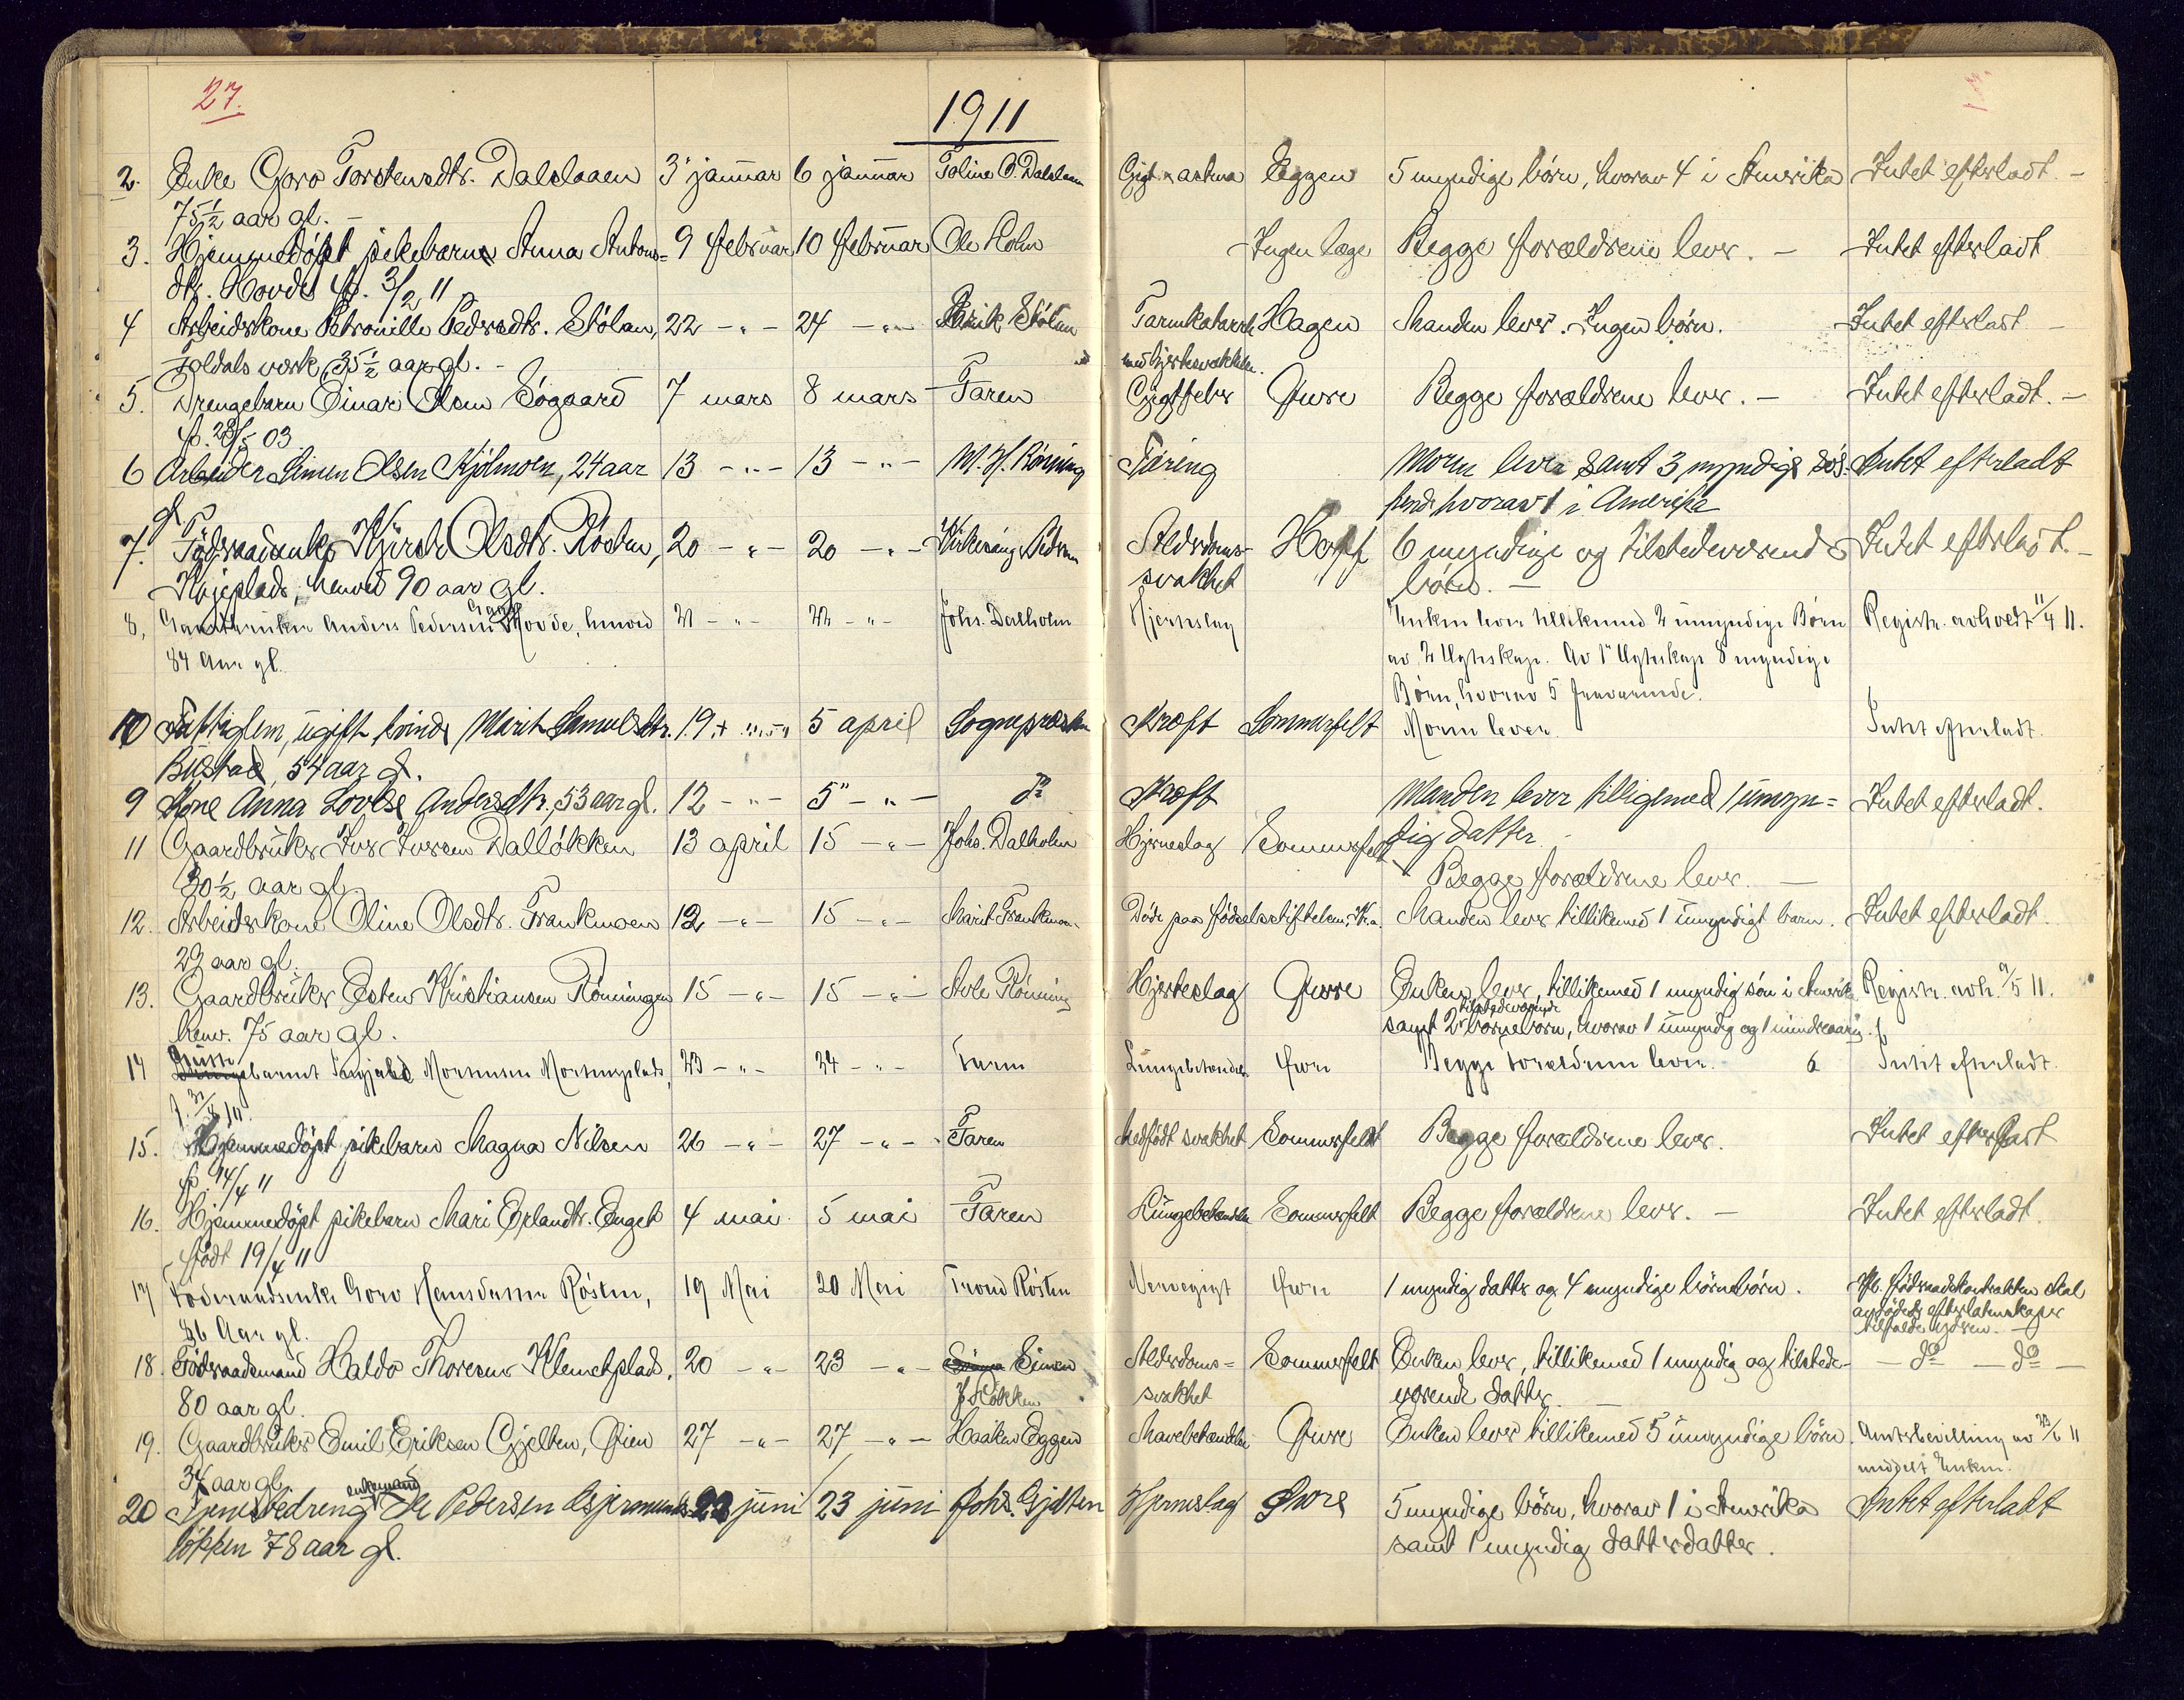 27.
1911
2. Enke Goro Torstensdtr. Dalslaaen 3 januar 6 januar Toline O. Dalslaaen Gigt & astma Eggen 5 myndige børn, hvorav 4 i Amerika Intet efterladt. -
75 1/2 aar gl. -
3. Hjemmedøpt pikebarn Anna Antons= 9 februar 10 februar Ole Holm Ingen læge Begge forældrene lever. - Intet efterladt
dtr. Hovde f. 3/2 11
4 Arbeidskone Petronille Pedersdtr. Stölan, 22 - " - 24 - " - Erik Stölan Tarmkatarrh Hagen Manden lever. Ingen børn. Intet efterladt -
Foldals verk, 35 1/2 aar gl. - med hjertesvakhet.
5. Drengebarn Einar Olsen Søgaard 7 mars 8 mars Faren Gigtfeber Qvre Begge forældrene lever. - Intet efterladt. -
f. 28/5 03
6 Arbeider Simen Olsen Kjölmoen, 24 aar 13 - " - 13 - " - M. H. Rönning Tæring Moren lever samt 3 myndige søs- Intet efterladt
gl. kende hvorav 1 i Amerika
7. Födraadsenke Kjersti Olsdtr. Røsten, 20 - " - 20 - " - Kirkesanger Pedersen Alderdoms- Hoff 6 myndige og tilstedeværende Intet efterladt. -
Koieplads, henved 90 aar gl. svakhet børn. -
8, Gaardbruker Anders Pedersen Hovde, henved 21 - " - 22 - " - Johs. Dalholm Hjerneslag Enken lever tillikemed 2 umyndige Børn Registr. avholdt 11/4 11.
84 Aar gl. av 2 Ægteskap. Av 1ste Ægteskap 8 myndige
Børn, hvorav 5 fraværende.
10 Fattiglem, ugift kvinde Marit Samuelsdtr. 19 5 april Sognepresten Kræft Sommerfelt Moren lever. Intet efterladt.
Bustad, 54 aar gl.
9 Kone Anna Lovise Andersdtr., 53 aar gl. 12 - " - 5" - " - do Kræft Manden lever tilligemed 1 umyn= Intet efterladt.
dig datter.
11 Gaardbruker Iver Iversen Dalløkken 13 april 15 - " - Johs. Dalholm Hjerneslag Sommerfelt
30 1/2 aar gl. Begge forældrene lever. -
12. Arbeidskone Oline Olsdtr. Frankmoen 12 - " - 15 - " - Marit Frankmoen Døde paa fødselsstiftelsen, Kr.a. Manden lever tillikemed 1 umyndigt barn. Intet efterladt.
29 aar gl.
13. Gaardbruker Esten Kristiansen Rönningen 15 - " - 15 - " - Atle Rönning Hjerteslag Qvre Enken lever, tillikemed 1 myndig søn i Amerika Registr. avh. 9/5 11.
henv. 75 aar gl. samt 2 tilstedeværende børnebørn, hvorav 1 umyndig og 1 mindreaarig.
14 barnet Ingjald Mortensen Mortensplads, 23 - " - 24 - " - Faren Lungebetændelse Qvre Begge Forældrene lever. Intet efterladt.
15. Hjemmedøpt pikebarn Magna Nilsen 26 - " - 27 - " - Faren Medfødt svakhet Sommerfeldt Begge forældrene lever. Intet efterladt
f. 14/4 11
16. Hjemmedøpt pikebarn Mari Erlandtr. Enget 4 mai 5 mai Faren Lungebetændelse Sommerfelt Begge forældrene lever. - Intet efterladt.
født 19/4 11
17 Föderaadsenke Goro Hansdatter Røsten, 19 Mai 20 Mai Trond Røsten Nervegigt Qvre 1 myndig datter og 4 myndige børnebørn. Ifl. födraadskontrakten skal
86 Aar gl. avdødes efterlatenskaper
tilfalde yderen. -
18. Födraadsmand Haldo Thoresen Klemetsplads, 20 - " - 23 - " - Simen Alderdoms= Sommerfelt Enken lever, tillikemed 1 myndig og tilstede- - do - do -
80 aar gl. Løkken svakhet værende datter.
19. Gaardbruker Emil Eriksen Gjelten, Øien 27 - " - 27 - " - Haaken Eggen Mavebetændelse Qvre Enken lever tillikemed 5 umyndige børn. Amtsbevilling av 23/6 11
34 aar gl. meddelt Enken.
20 enkemand Ole Pedersen Asjermunds- 22 juni 23 juni Johs. Gjelten Hjerneslag Qvre 5 myndige børn, hvorav 1 i Amerika Intet efterladt
løkken 78 aar gl. samt 1 myndig datterdatter.